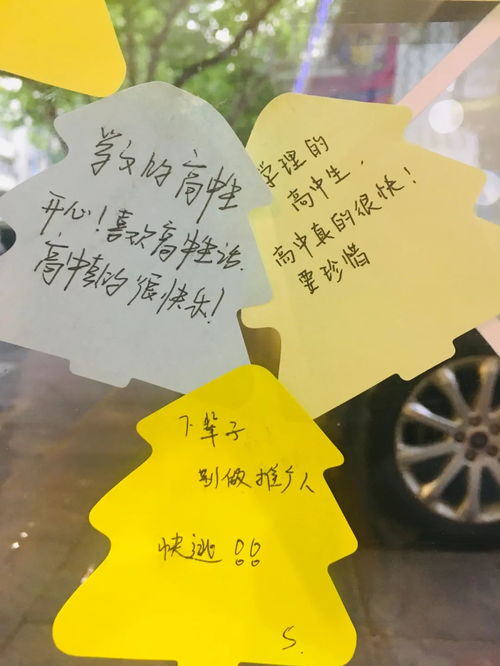 学文的高中生
开心！喜欢高中生活.
高中真的很快乐！
学理的
高中生，
高中真的很快！
要珍惜
下辈子
别做推广人
快逃！！
S.